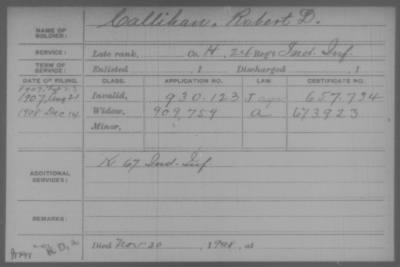 NAME OF SOLDIER: Callihan, Robert D.
SERVICE: Late rank, Co. H, 24 Reg't Ind. Inf
TERM OF SERVICE: Enlisted , 1 Discharged , 1
DATE OF FILING. CLASS. APPLICATION NO. LAW. CERTIFICATE NO.
Invalid, 930.123 657.734
1907 Aug 21 Widow, 909.759 a 673923
1908 Dec 14 Minor,
ADDITIONAL SERVICES: K 67 Ind. Inf
REMARKS:
Died Nov 20, 1908, at